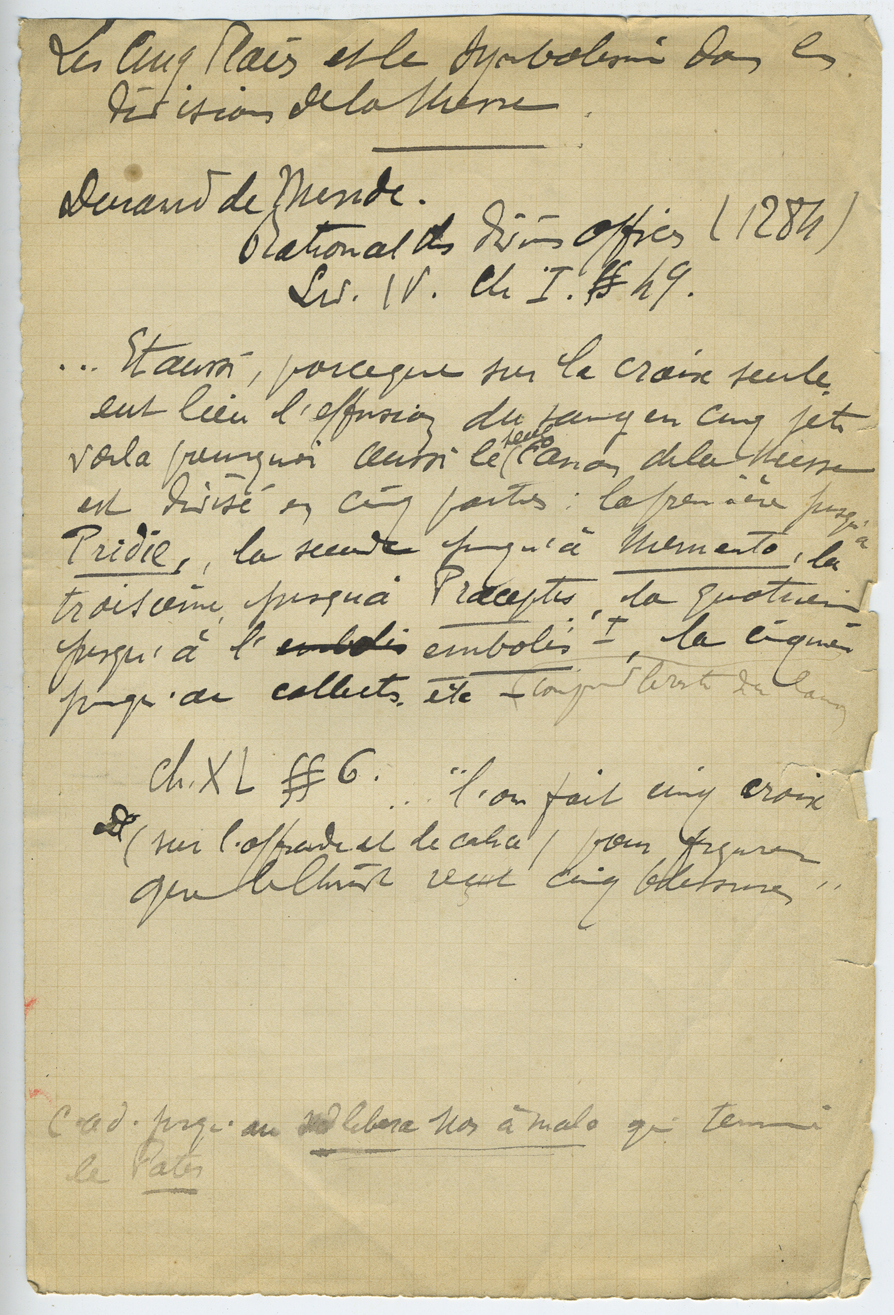 Les Cinq Plaies et le Symbolisme dans les
divisions de la Messe
Durand de Mende.
Rational des divins offices (1284)
Liv. IV. Ch I. § 49.
... Et aussi, parceque sur la croix seule
eut lieu l'effusion du sang en cinq jets
voila pourquoi aussi le (seul) Canon de la Messe
est divisé en cinq parties : la première jusqu'à
Pridie, la seconde jusqu'à Memento, la
troisième, jusqu'à Praeceptis, la quatrième
jusqu'à l' embolis embolis I, la cinquième
jusqu'au collecte, etc
du Canon
ch. XL § 6. ... "l'on fait cinq croix
(sur l'offrande et le calice) pour figurer
que le Christ reçut cinq blessures"
C.a.d. jusqu'au libera nos à malo qui termine
le Pater